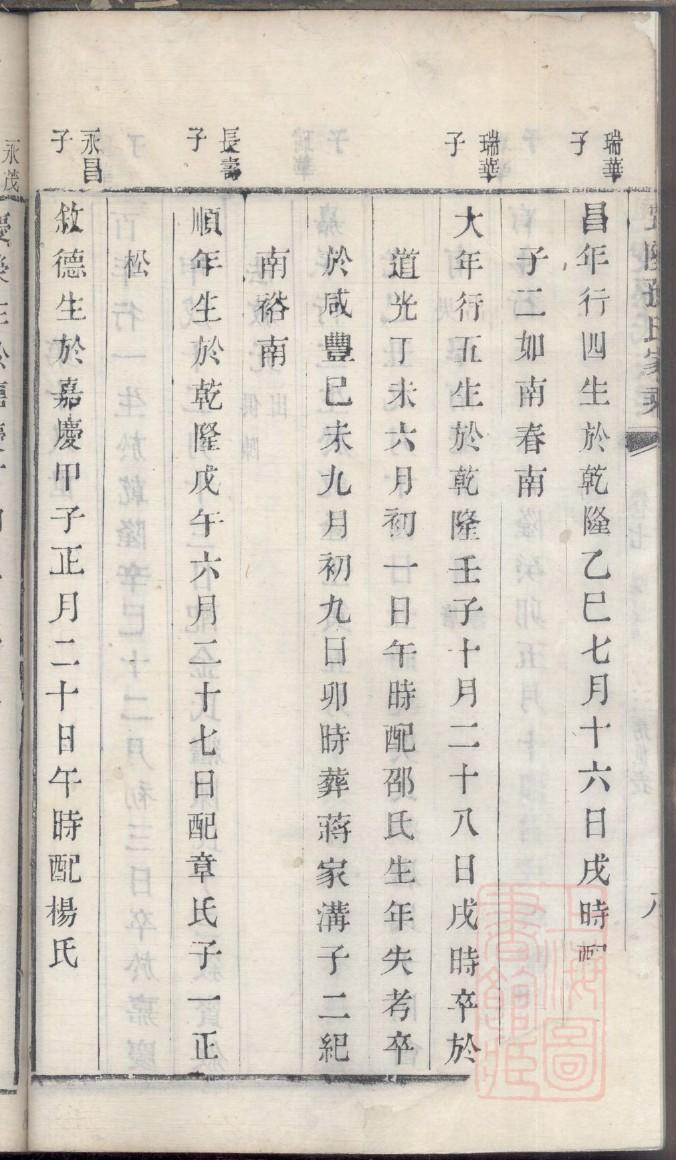 孫氏家乘
八
瑞華
子
昌年行四生於乾隆乙巳七月十六日戌時配
子二如南春南
瑞華
子
大年行五生於乾隆壬子十月二十八日戌時卒於
道光丁未六月初一日午時配邵氏生年失考卒
於咸豐己未九月初九日卯時葬蔣家溝子二紀
南裕南
長壽
子
順年生於乾隆戊午六月二十七日配章氏子一正
松
永昌
子
敘德生於嘉慶甲子正月二十日午時配楊氏
永茂
上海圖書館藏